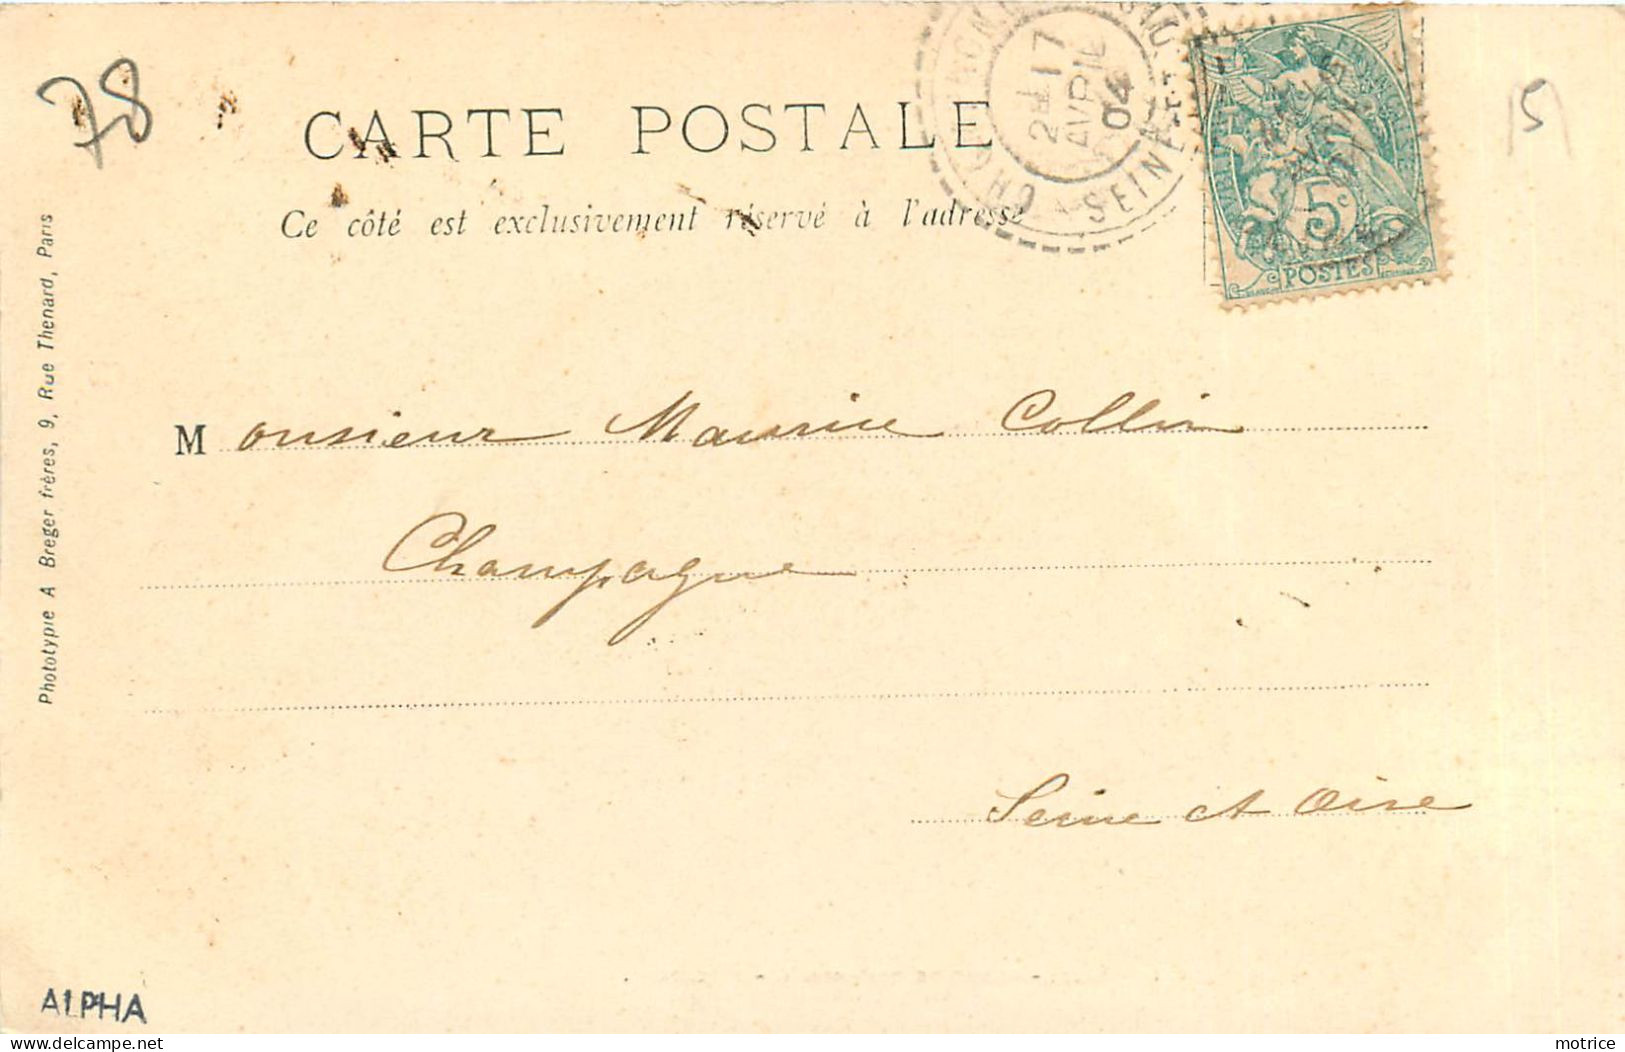 78
5
CARTE POSTALE
Ce côté est exclusivement réservé à l'adresse
17
AVRIL
04
SEINE
5c
POSTES
Phototypie A Breger frères, 9, Rue Thenard, Paris
Monsieur Maurice Collin
Champagne
Seine et Oise
ALPHA
motrice